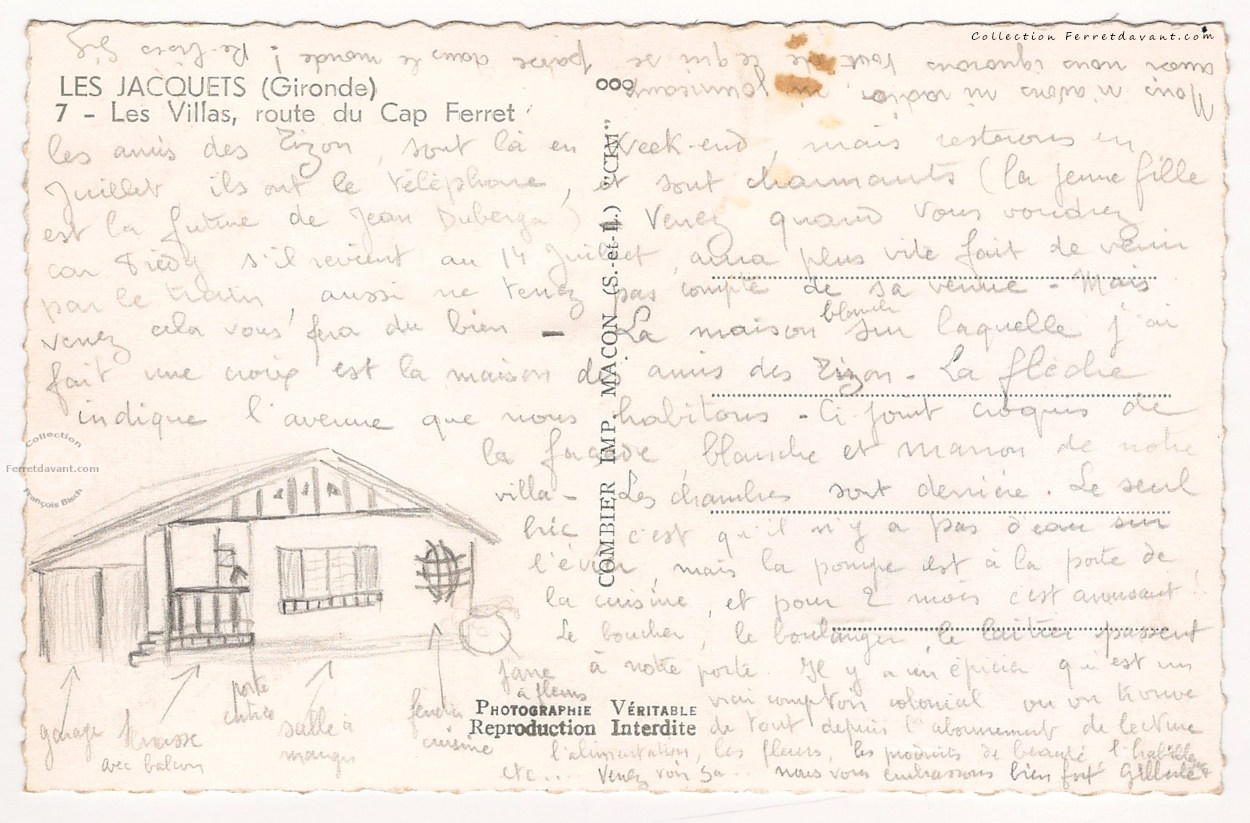 Collection Ferretdavant.com
LES JACQUETS (Gironde)
7 - Les Villas, route du Cap Ferret
les amis des Tizon, sont là en week-end, mais resterons en
Juillet ils ont le téléphone, et sont charmants (la jeune fille
est la future de Jean Duberga) Venez quand vous voudrez
car Frédy s'il revient au 14 Juillet, aura plus vite fait de venir
par le train, aussi ne tenez pas compte de sa venue - Mais
venez cela vous fera du bien - La maison blanche sur laquelle j'ai
fait une croix est la maison des amis des Tizon - La flèche
indique l'avenue que nous habitons - Ci joint croquis de
la façade, blanche et marron de notre
villa - Les chambres sont derrière. Le seul
hic c'est qu'il n'y a pas d'eau sur
l'évier, mais la pompe est à la porte de
la cuisine, et pour 2 mois c'est amusant.
Le boucher, le boulanger, le laitier passent
à notre porte. Il y a un épicier qui est un
vrai comptoir colonial où on trouve
de tout depuis l'abonnement de lecture
l'alimentation, les fleurs, les produits de beauté, l'habillement
etc... Venez voir ça... nous vous embrassons bien fort Gilberte
Mais n'avons ni radio, ni journeaux
aussi nous ignorons tout de ce qui se passe dans le monde ! Re-bises Gil
garage
terrasse
avec balcon
porte
entrée
salle à
manger
fenêtre
cuisine
jarre
à fleurs
COMBIER IMP. MACON (S.-et-L.) "CIM"
PHOTOGRAPHIE VÉRITABLE
Reproduction Interdite
Collection
Ferretdavant.com
François Bisch